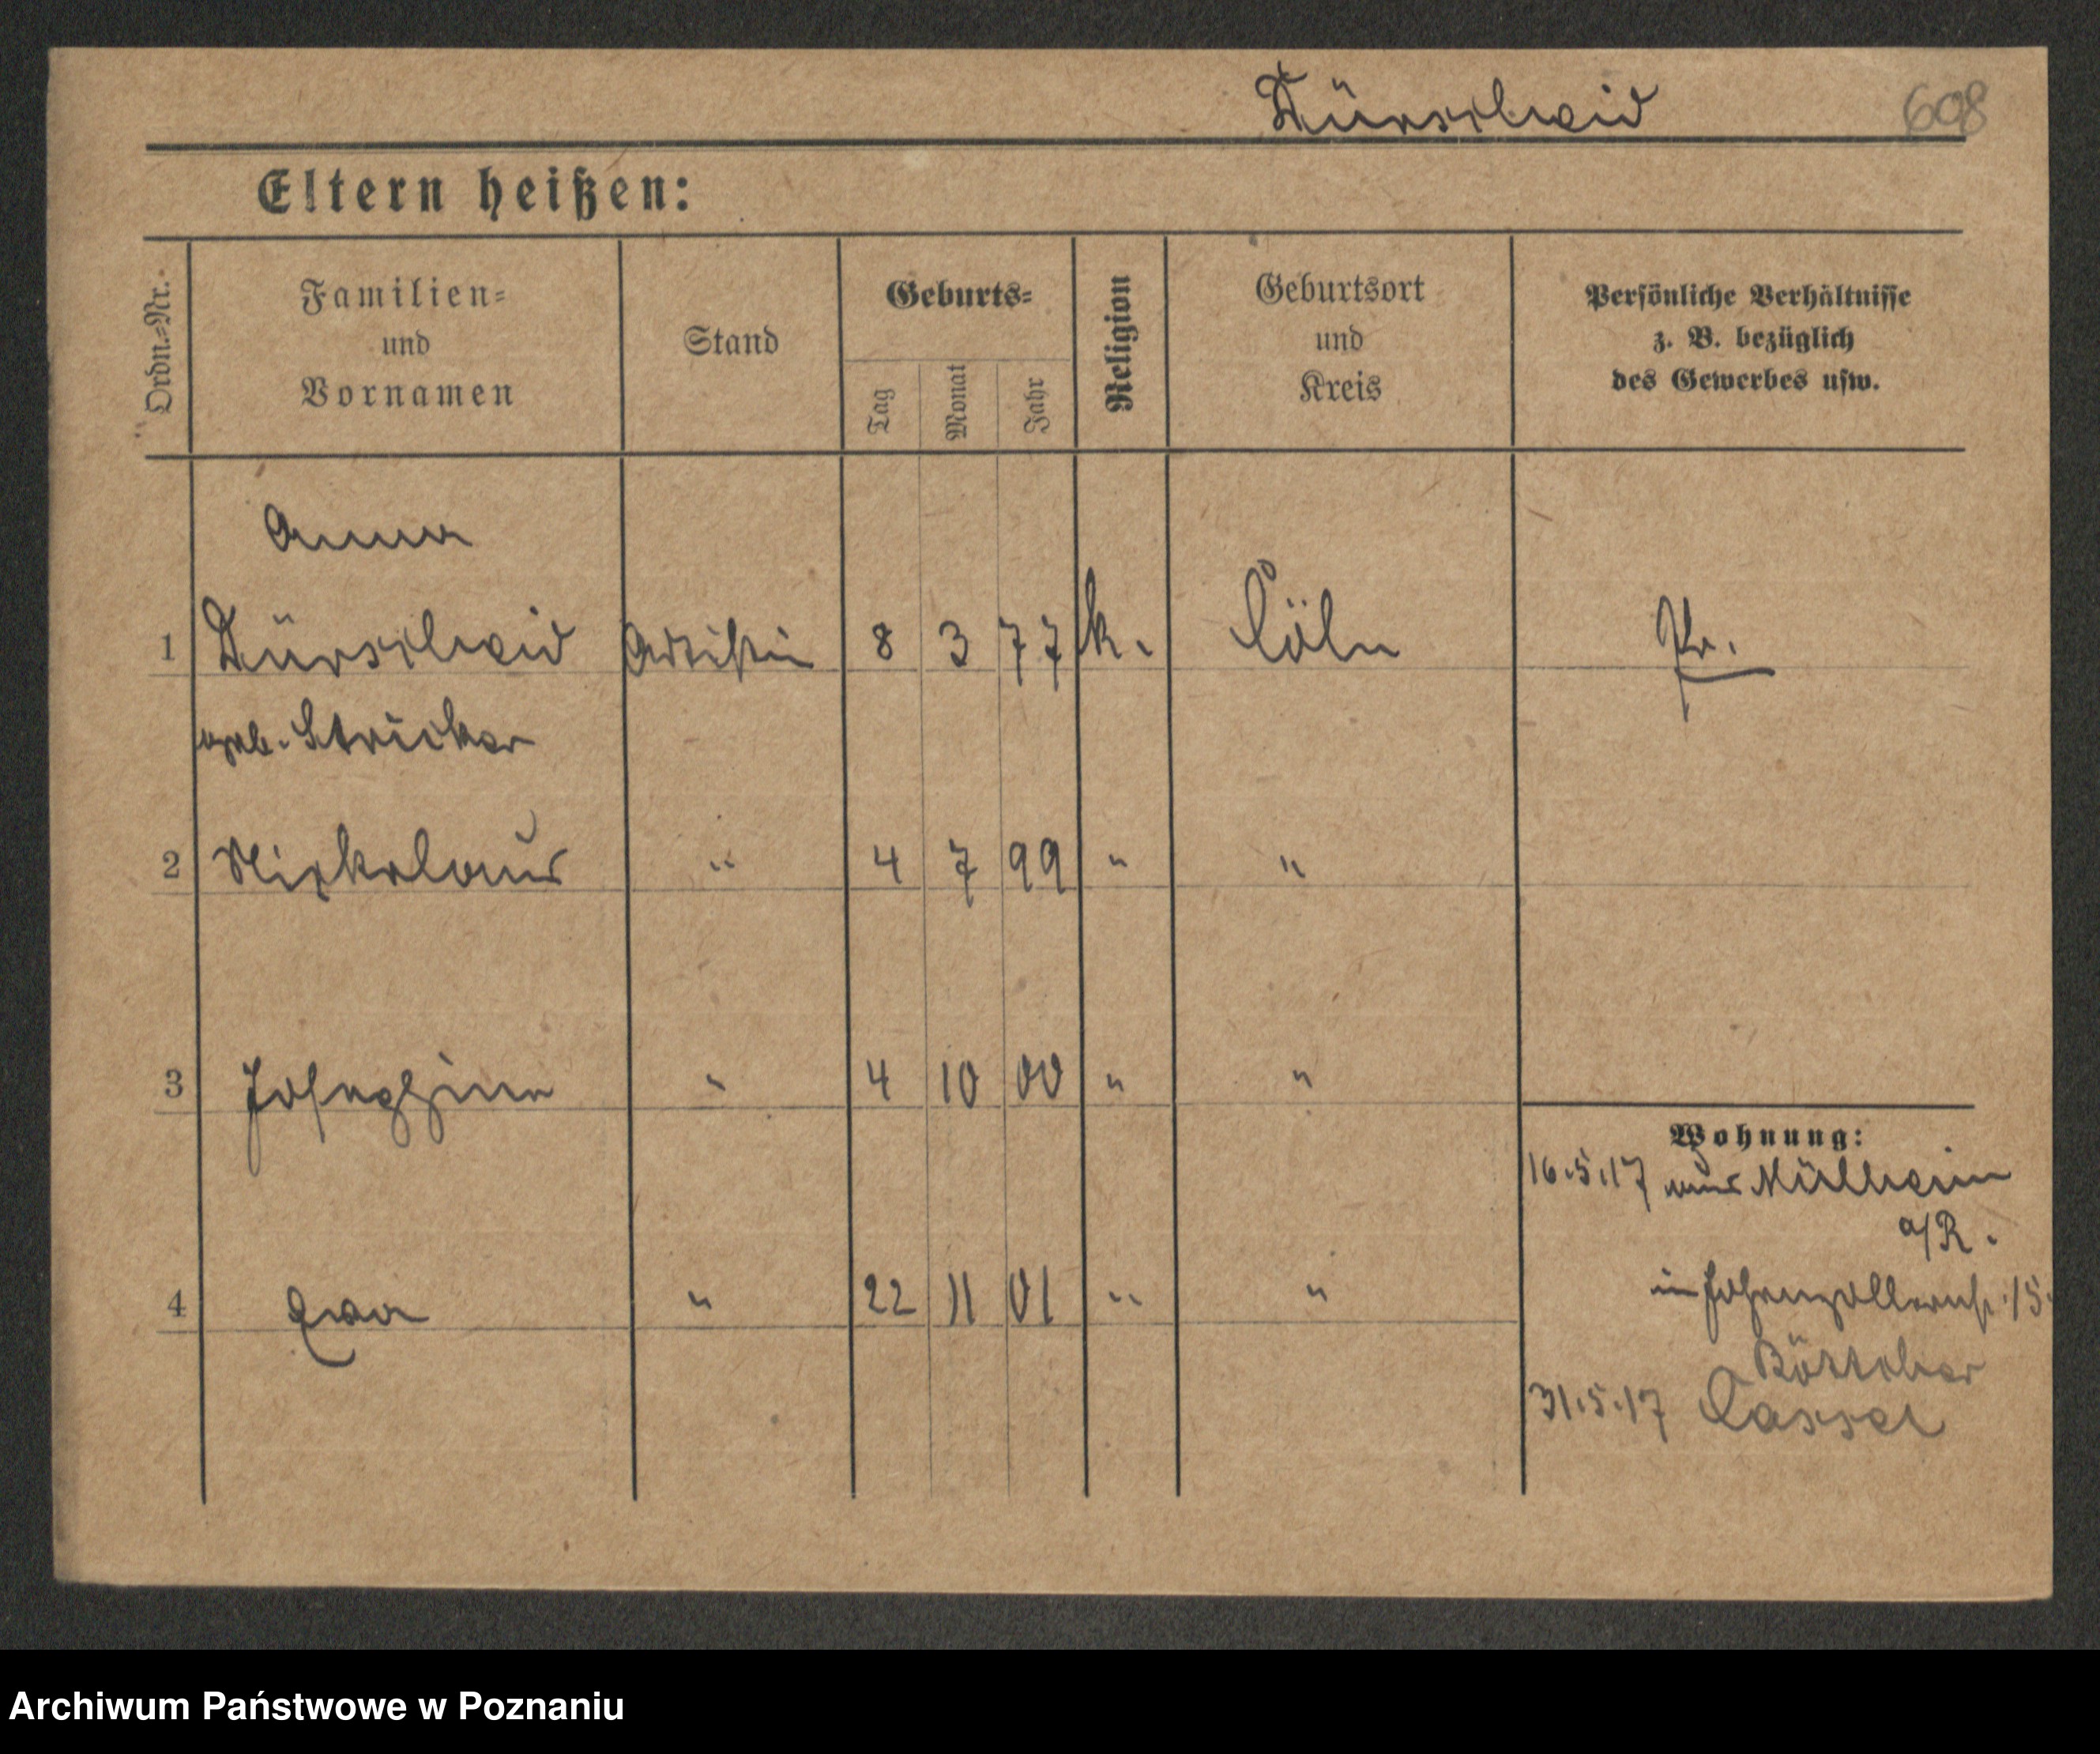 Dürscheid 608
Eltern heißen:
Ordn.=Nr.
Familien=
und
Vornamen
Stand
Geburts=
Tag
Monat
Jahr
Religion
Geburtsort
und
Kreis
Persönliche Verhältnisse
z. B. bezüglich
des Gewerbes usw.
Anna
1 Dürscheid Artistin 8 3 77 k. Cöln Pr.
geb. Stricker
2 Nickolaus " 4 7 99 " "
3 Josephine " 4 10 00 " "
Wohnung:
16.5.17 aus Mülheim
a/R.
4 Eva " 22 11 01 " "
in Hohenzollernstr. 15
Böttcher
31.5.17 Cassel
Archiwum Państwowe w Poznaniu